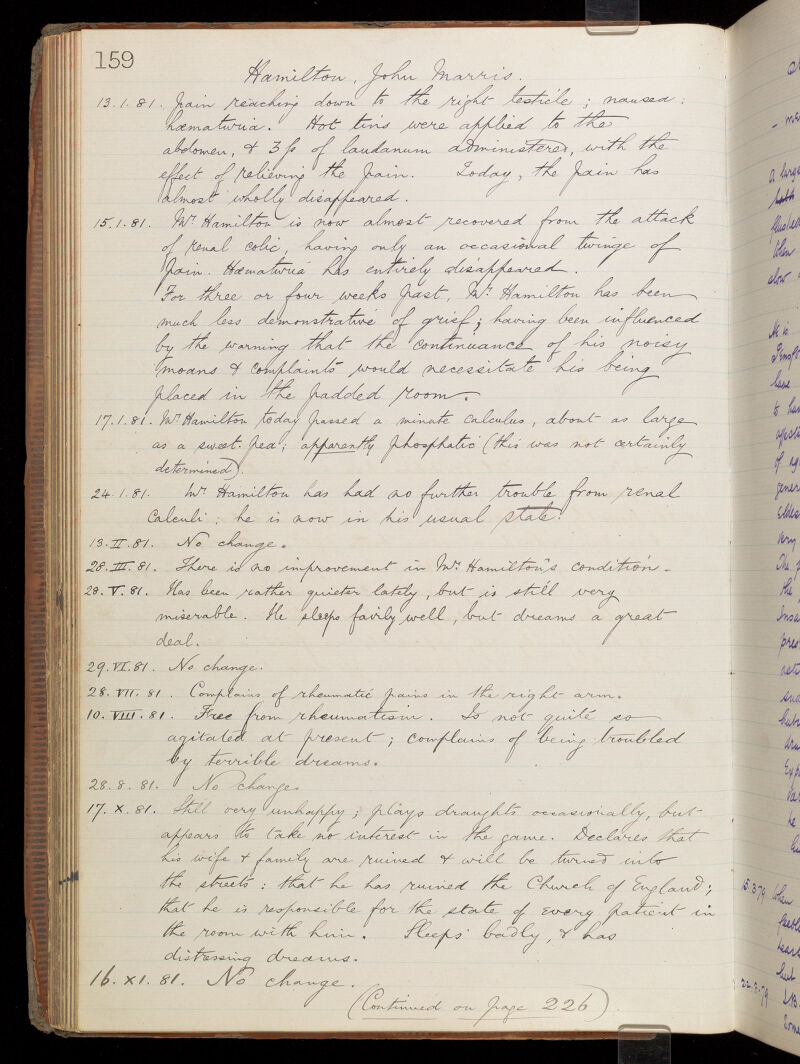 159
Hamilton, John Marris.
13.1.81. Pain reaching down to the right testicle; nausea;
hæmaturia. Hot tins were applied to the
abdomen, & of laudanum administered, with the
effect of relieving the pain. Today, the pain has
almost wholly disappeared.
15.1.81. Mr. Hamilton is now almost recovered from the attack
of renal colic, having only an occasional twinge of
pain. Hæmaturia has entirely disappeared.
For three or four weeks past, Mr. Hamilton has been
much less demonstrative of grief; having been influenced
by the warning that the continuance of his noisy
moans & complaints would necessitate his being
placed in the padded room.
17.1.81. Mr. Hamilton today passed a minute calculus, about as large
as a sweet-pea; apparently phosphatic (this was not certainly
determined)
24.1.81. Mr. Hamilton has had no further trouble from renal
Calculi: he is now in his usual state.
13.II.81. No change.
28.III.81. There is no improvement in Mr. Hamilton's condition.
28.V.81. Has been rather quieter lately, but is still very
miserable. He sleeps fairly well, but dreams a great
deal.
29.VI.81. No change.
28.VII.81. Complains of rheumatic pains in the right arm.
10.VIII.81. Free from rheumatism. Is not quite so
agitated at present; complains of being troubled
by terrible dreams.
28.8.81. No change.
17.X.81. Still very unhappy; plays draughts occasionally, but
appears to take no interest in the game. Declares that
his wife & family are ruined & will be turned into
the streets: that he has ruined the Church of England;
that he is responsible for the state of every patient in
the room with him. Sleeps badly, & has
distressing dreams.
16.XI.81. No change.
(Continued on page 226)
15.3.79 When